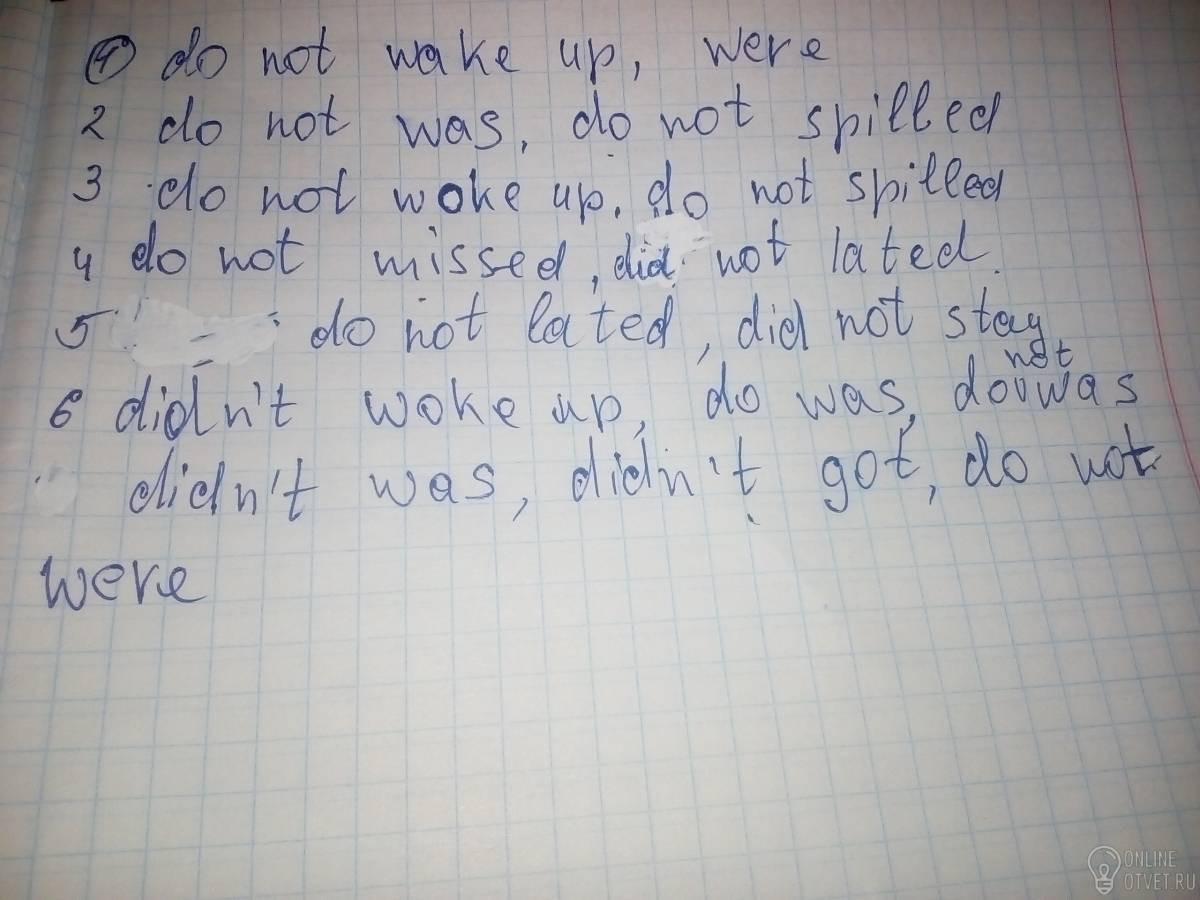 1 do not wake up, were
2 do not was, do not spilled
3 do not woke up, do not spilled
4 do not missed, did not lated.
5 do not lated, did not stay
not
6 didn't woke up, do was, do was
didn't was, didn't got, do not
were
ONLINE
OTVET.RU